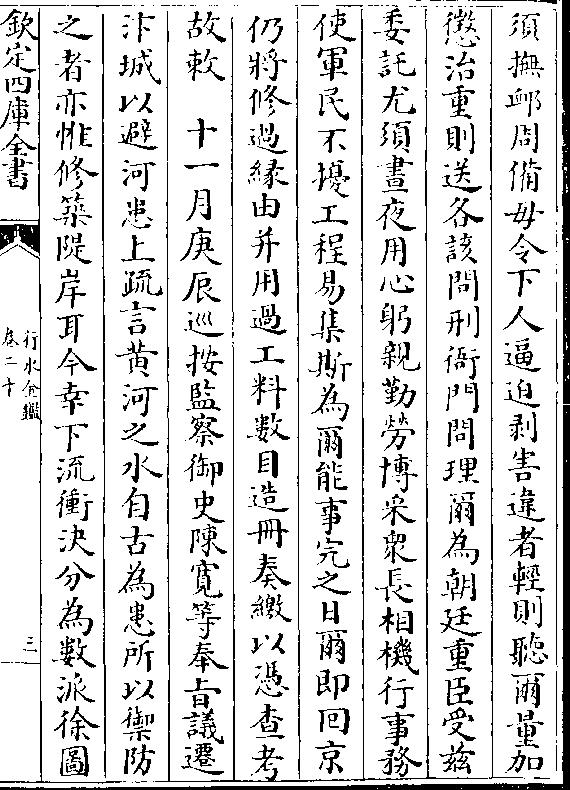 須撫䘏周備毋令下人逼迫剥害違者輕則聽爾量加
懲治重則送各該問刑衙門問理爾為朝廷重臣受兹
委託尤須晝夜用心躬親勤勞博采衆長相機行事務
使軍民不擾工程易集斯為爾能事完之日爾即回京
仍將修過縁由并用過工料數目造冊奏繳以憑查考
故敕　十一月庚辰巡按監察御史陳寛等奉㫖議遷
汴城以避河患上疏言黄河之水自古為患所以禦防
之者亦惟修築隄岸耳今幸下流衝決分為數派徐圖
欽定四庫全書
行水金鑑
卷二十
三